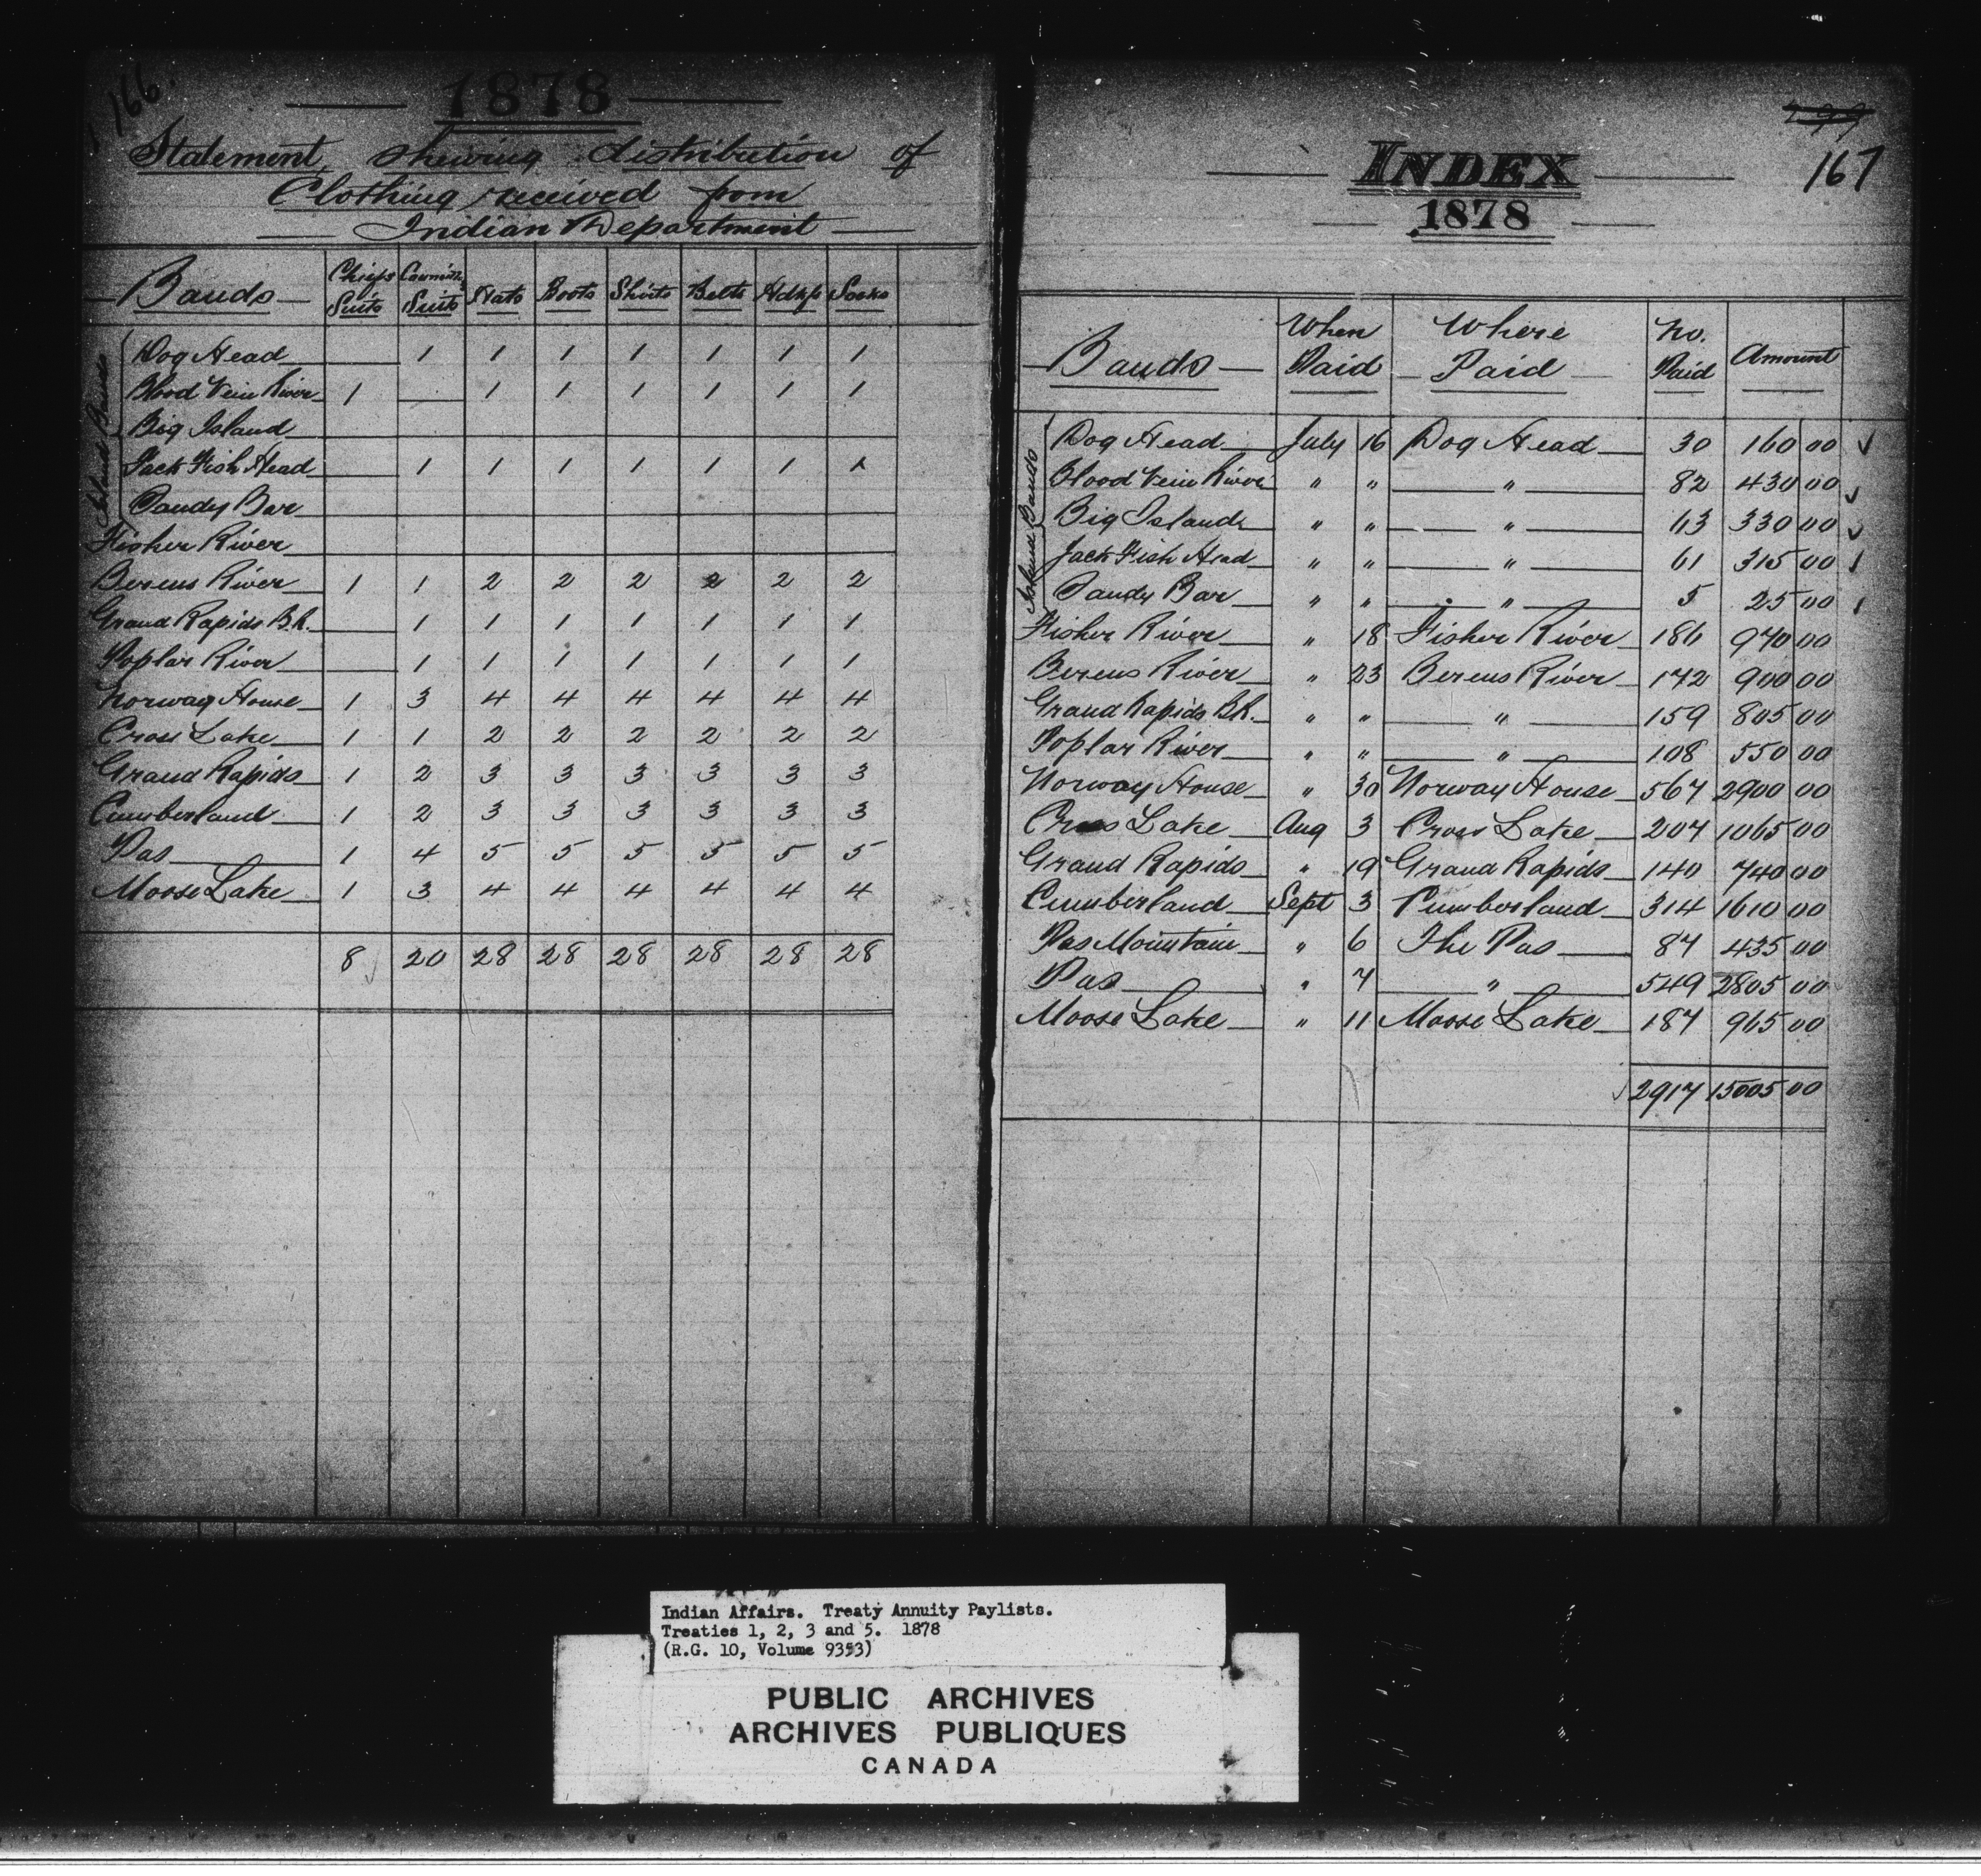 166.
1878
Statement shewing distribution of
Clothing received from
Indian Department
Bands Chiefs Suits Councillrs Suits Hats Boots Shirts Belts Hdkfs Socks
Island Bands
Dog Head 1 1 1 1 1 1 1
Blood Vein River 1 1 1 1 1 1 1
Big Island
Jack Fish Head 1 1 1 1 1 1 1
Sandy Bar
Fisher River
Berens River 1 1 2 2 2 2 2 2
Grand Rapids B.R. 1 1 1 1 1 1 1
Poplar River 1 1 1 1 1 1 1
Norway House 1 3 4 4 4 4 4 4
Cross Lake 1 1 2 2 2 2 2 2
Grand Rapids 1 2 3 3 3 3 3 3
Cumberland 1 2 3 3 3 3 3 3
Pas 1 4 5 5 5 5 5 5
Moose Lake 1 3 4 4 4 4 4 4
8 20 28 28 28 28 28 28
167
INDEX
1878
Bands When Paid Where Paid No. Paid Amount
Island Bands
Dog Head July 16 Dog Head 30 160 00 ✓
Blood Vein River " " " 82 430 00 ✓
Big Island " " " 63 330 00 ✓
Jack Fish Head " " " 61 315 00
Sandy Bar " " " 5 25 00
Fisher River " 18 Fisher River 186 970 00
Berens River " 23 Berens River 172 900 00
Grand Rapids B.R. " " " 159 805 00
Poplar River " " " 108 550 00
Norway House " 30 Norway House 567 2900 00
Cross Lake Aug 3 Cross Lake 207 1065 00
Grand Rapids " 19 Grand Rapids 140 740 00
Cumberland Sept 3 Cumberland 314 1610 00
Pas Mountain " 6 The Pas 87 435 00
Pas " 7 " 549 2805 00
Moose Lake " 11 Moose Lake 187 965 00
✓ 2917 15005 00
Indian Affairs. Treaty Annuity Paylists.
Treaties 1, 2, 3 and 5. 1878
(R.G. 10, Volume 9353)
PUBLIC ARCHIVES
ARCHIVES PUBLIQUES
CANADA